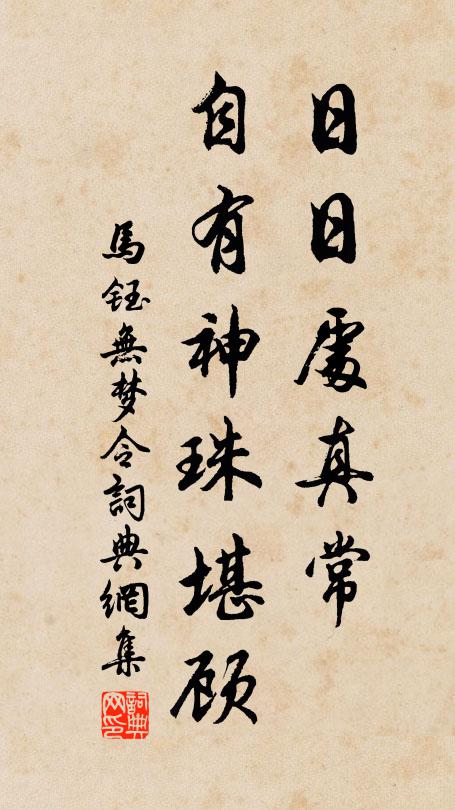 日日處真常
自有神珠堪顾
馬鈺無梦令詞典網集
詞典网印